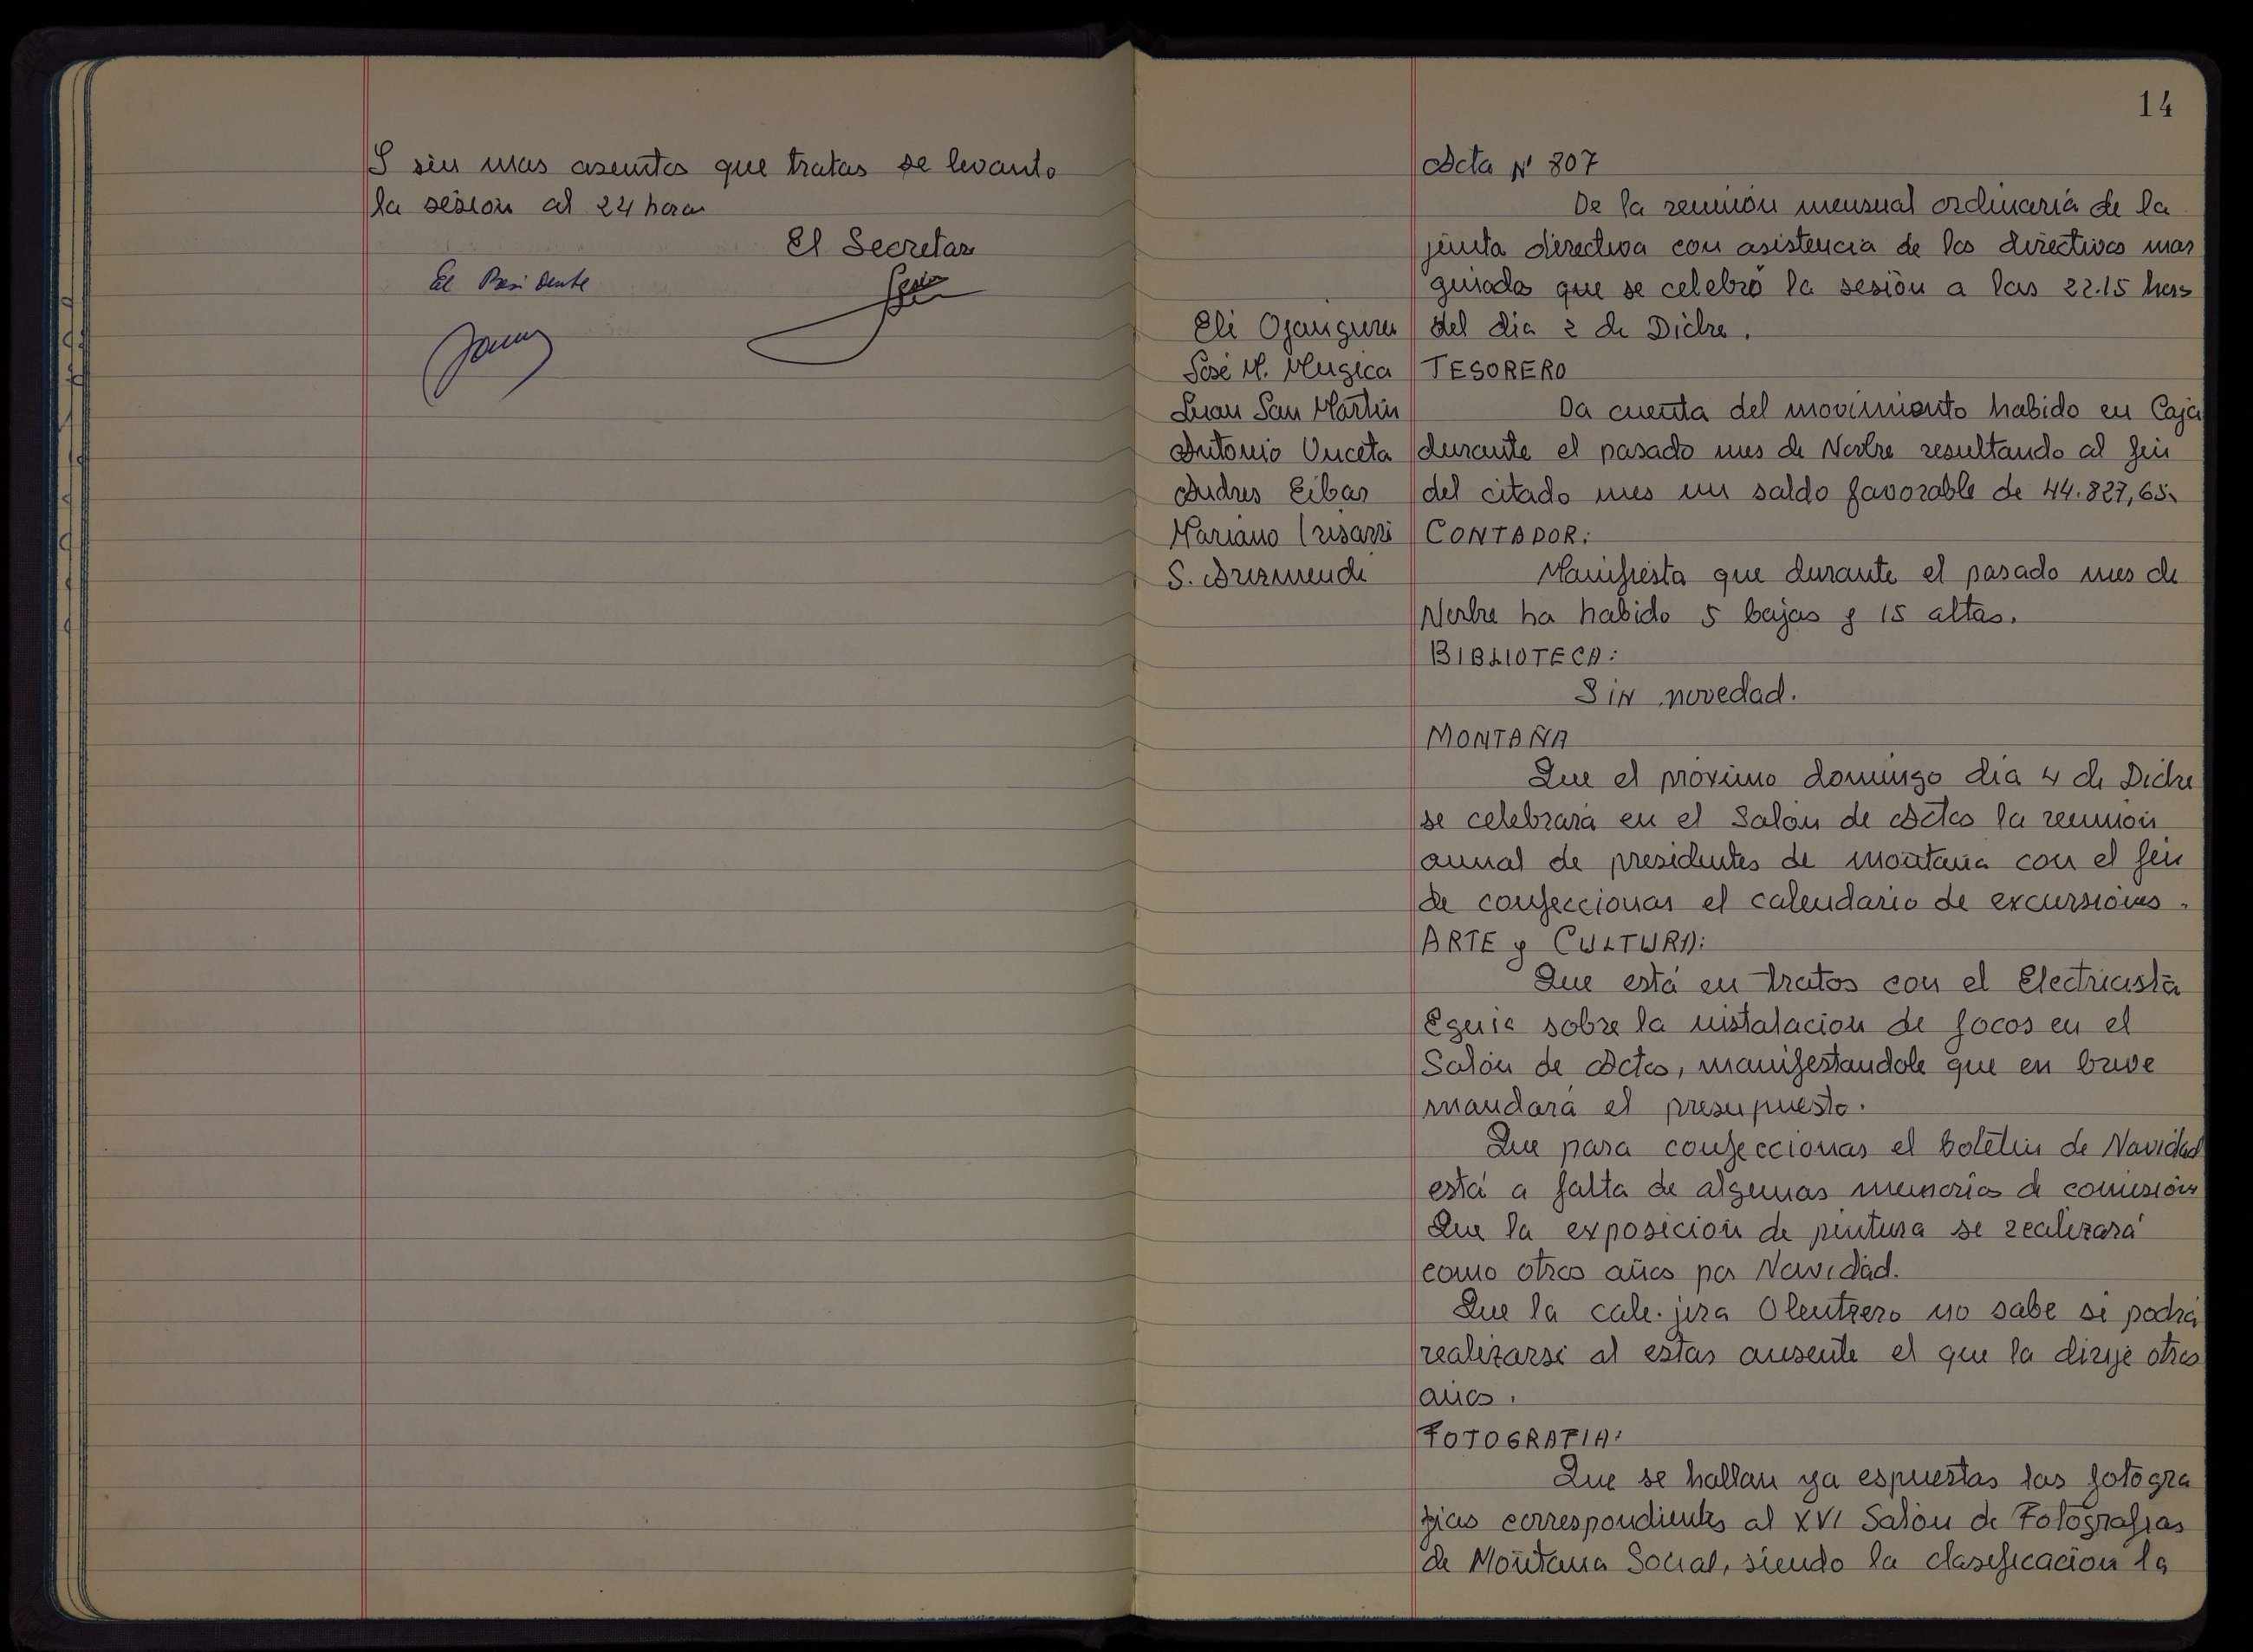 Y sin mas asuntos que tratar se levanto
la sesion al 24 horas
El Secretar
El Presidente
14
Acta Nº 807
De la reunión mensual ordinaria de la
junta directiva con asistencia de los directivos mar
guinados que se celebró la sesión a las 22.15 hors
Eli Ojanguren
del dia 2 de Dicbre.
José M. Mugica
TESORERO
Juan San Martín
Da cuenta del movimiento habido en Caja
Antonio Unceta
durante el pasado mes de Novbre resultando al fin
Andres Eibar
del citado mes un saldo favorable de 44.827,65.
Mariano Irisarri
CONTADOR:
S. Arizmendi
Manifiesta que durante el pasado mes de
Novbre ha habido 5 bajas y 15 altas.
BIBLIOTECA:
Sin novedad.
MONTAÑA
Que el próximo domingo dia 4 de Dicbre
se celebrará en el Salon de Actos la reunión
annal de presidentes de montaña con el fin
de confeccionar el calendario de excursiones.
ARTE y CULTURA:
Que está en tratos con el Electricista
Eguia sobre la instalacion de focos en el
Salón de Actos, manifestandole que en breve
mandará el presupuesto.
Que para confeccionar el boletin de Navidad
está a falta de algunas memorias de comisión
Que la exposicion de pintura se realizará
como otros años por Navidad.
Que la cale-jira Olentzero no sabe si podrá
realizarse al estar ausente el que la dirije otros
años.
FOTOGRAFIA:
Que se hallan ya espuestas las fotogra
fias correspondientes al XVI Salón de Fotografias
de Montaña Social, siendo la clasificacion la